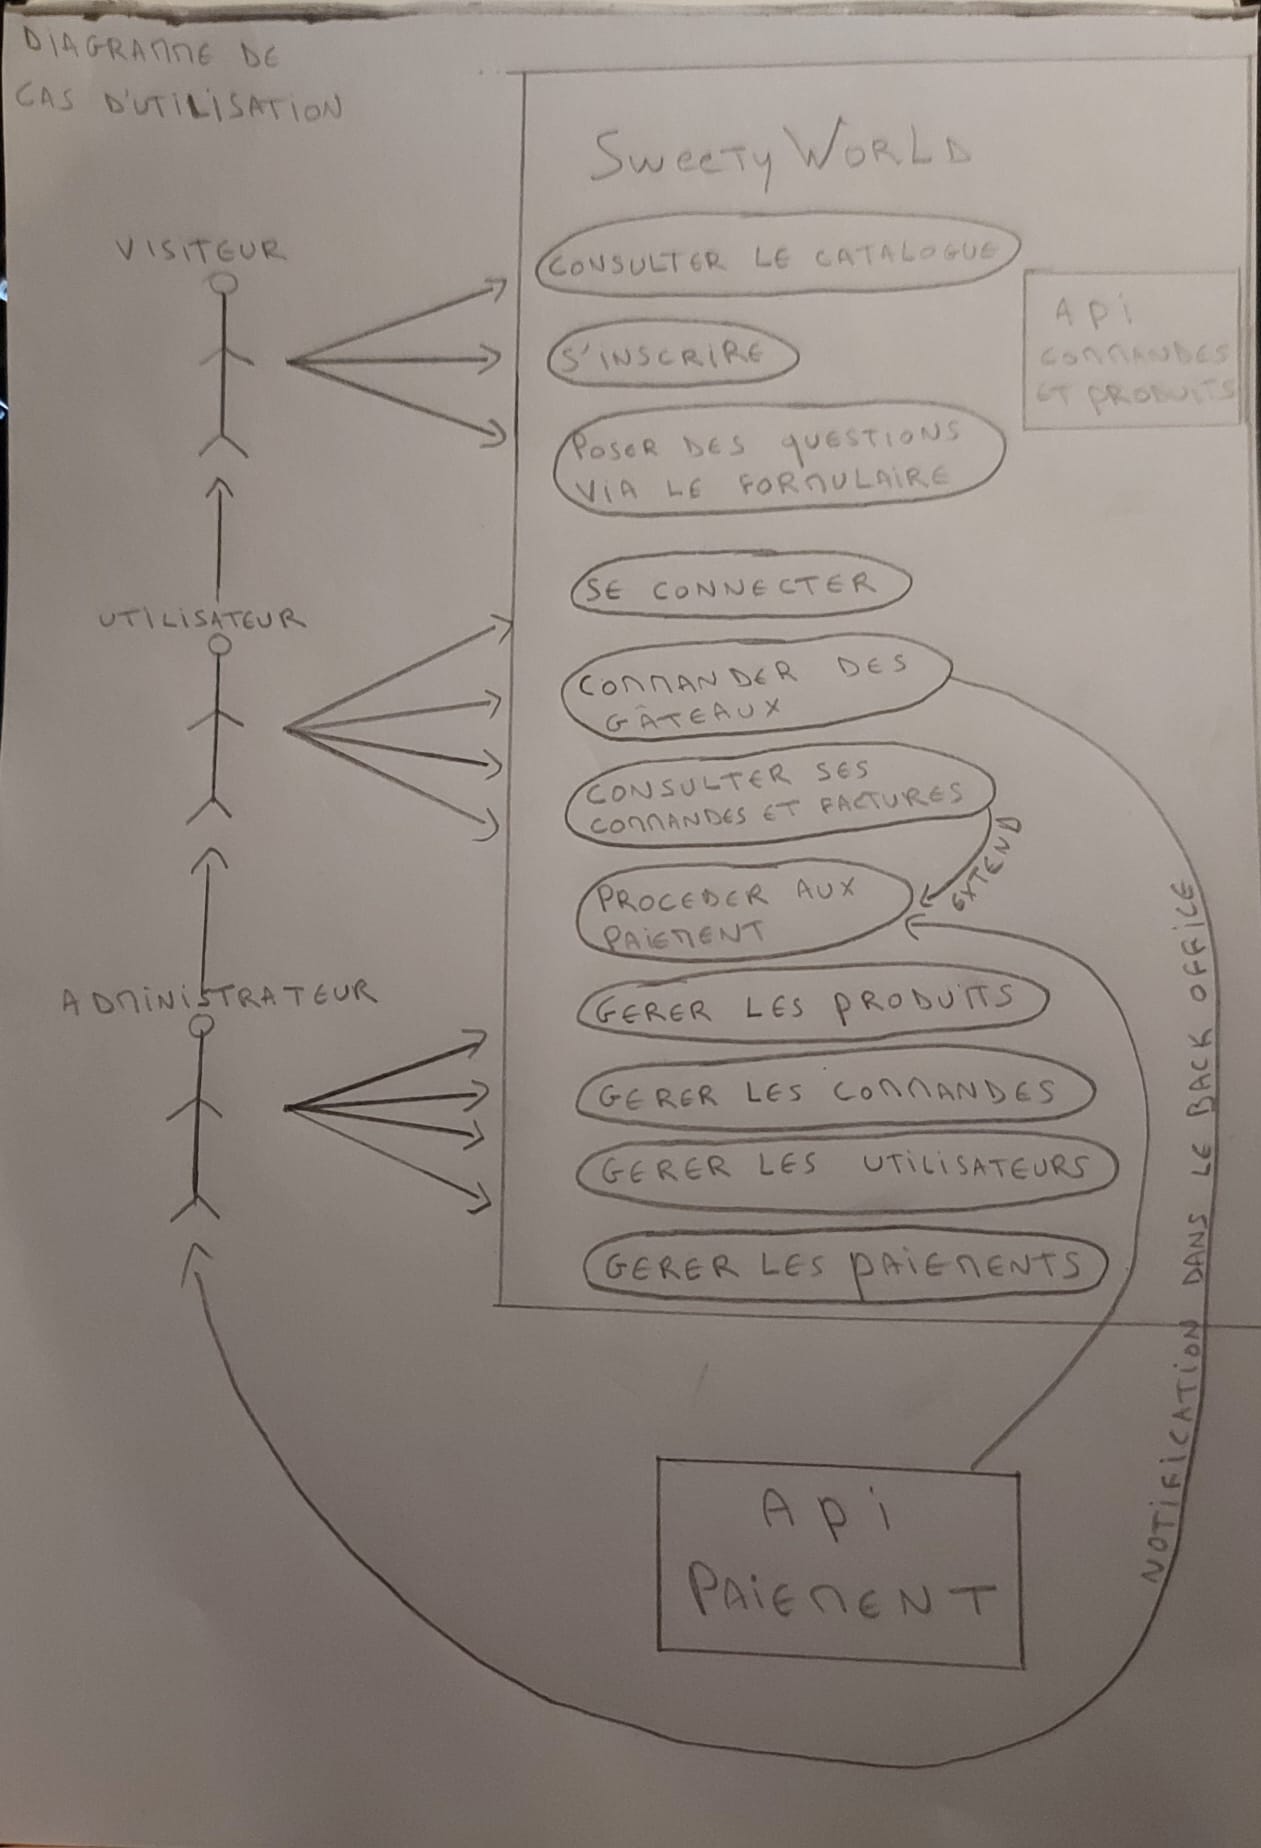 DIAGRAMME DE
CAS D'UTILISATION
SWEETY WORLD
VISITEUR
CONSULTER LE CATALOGUE
S'INSCRIRE
Api
COMMANDES
ET PRODUITS
POSER DES QUESTIONS
VIA LE FORMULAIRE
UTILISATEUR
SE CONNECTER
COMMANDER DES
GÂTEAUX
CONSULTER SES
COMMANDES ET FACTURES
EXTEND
PROCEDER AUX
PAIEMENT
ADMINISTRATEUR
GERER LES PRODUITS
GERER LES COMMANDES
GERER LES UTILISATEURS
GERER LES PAIEMENTS
NOTIFICATION DANS LE BACK OFFICE
Api
PAIEMENT